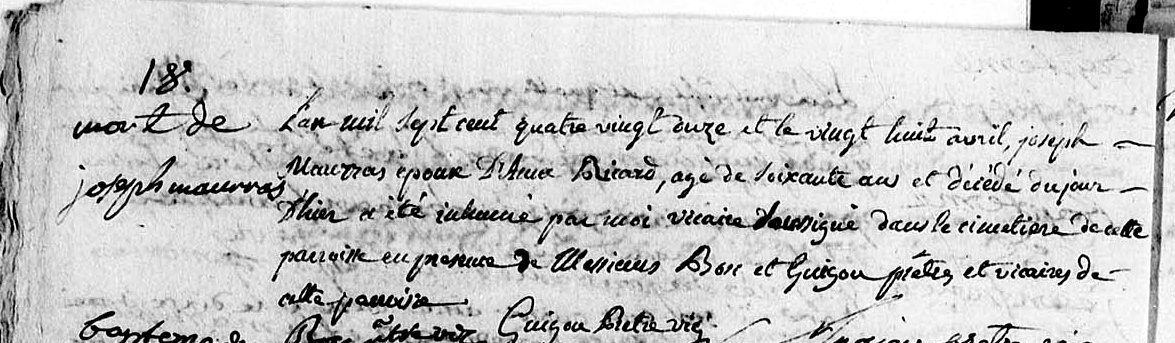 18.
mort de
joseph maurras
L'an mil sept cent quatre vingt onze et le vingt huit avril, joseph
Maurras époux D'Anne Ricard, agé de soixante ans et décédé du jour
D'hier a été inhumé par moi vicaire soussigné dans le cimetiere de cette
parroisse en presence de Messieurs Bos et Guigou prêtres et vicaires de
cette parroisse
Guigou Pretre vic
bapteme de